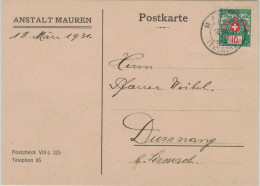 ANSTALT MAUREN
Postkarte
12. März 1931
Herrn
Pfarrer Weibel.
Dussnang
b. Sirnach.
Postcheck VIII c 325
Telephon 65